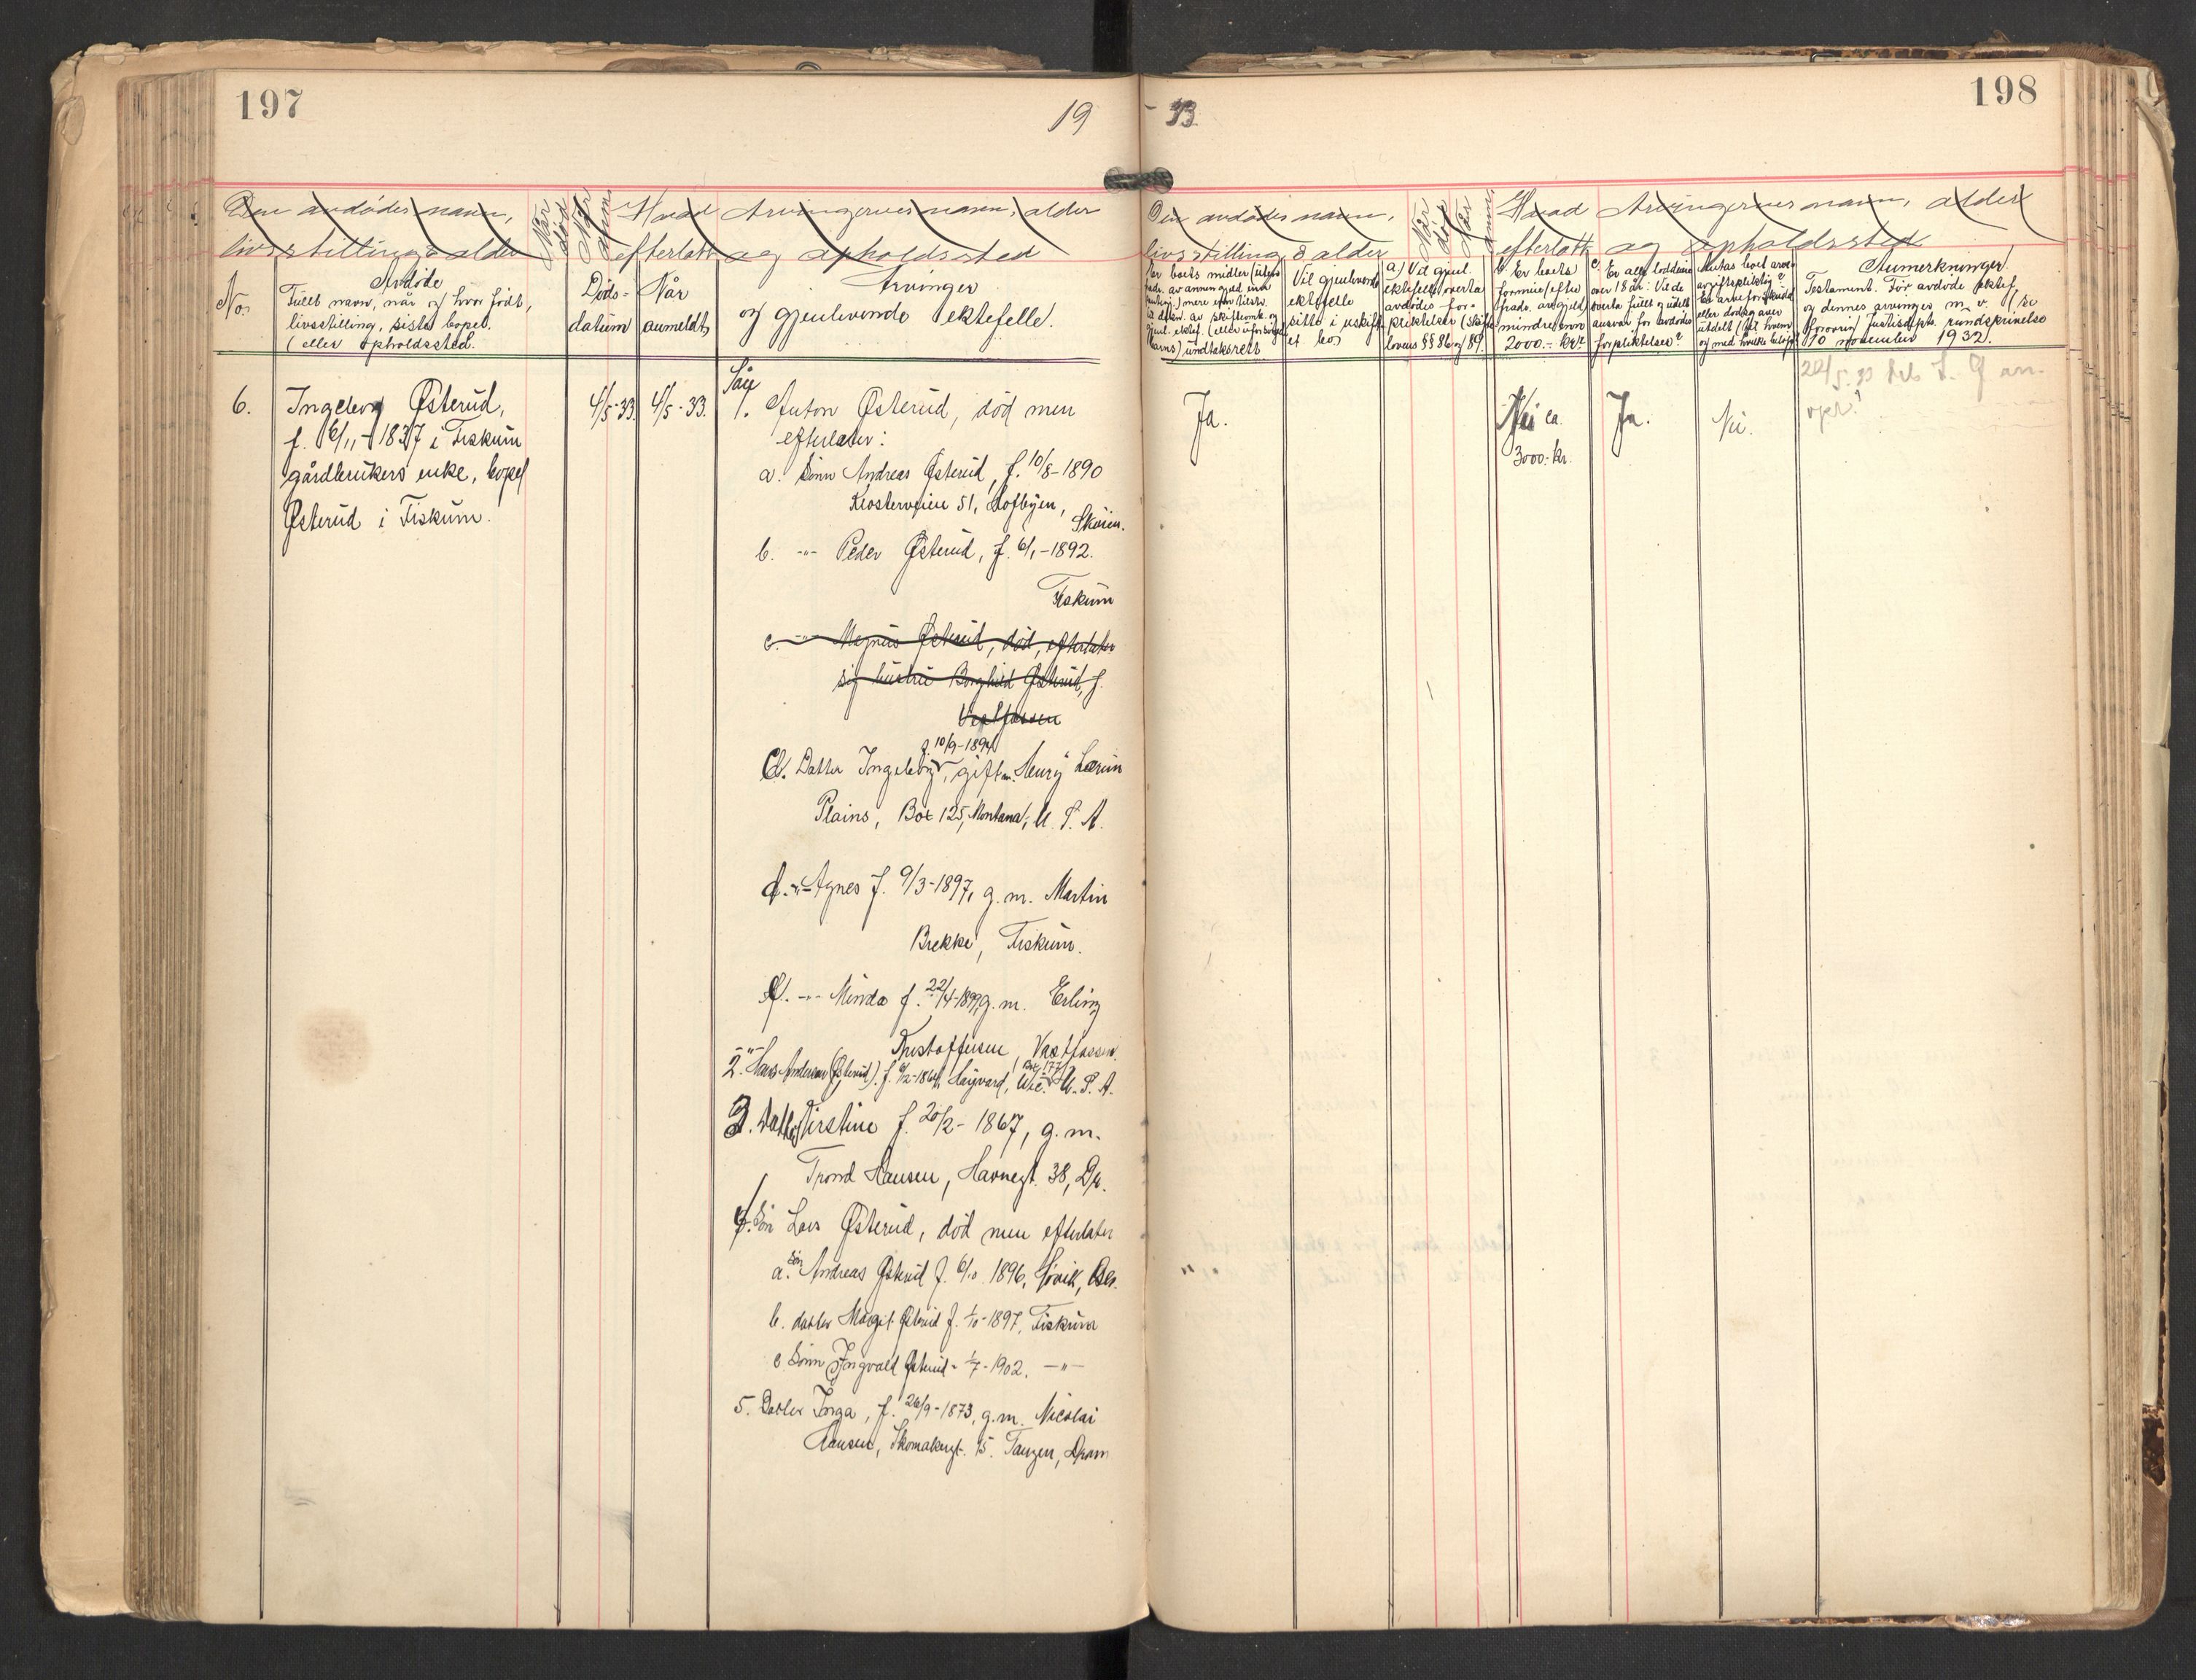 197
19
Den avdødes navn,
livsstilling & alder
Når død
Når anm
Hvad
efterlatt
Arvingernes navn, alder
og opholdssted
No.
Avdøde
Fullt navn, når og hvor født,
livsstilling, siste bopel.
(eller opholdssted.
Døds-
datum
Når
anmeldt,
Arvinger
og gjenlevende ektefelle.
6.
Ingeborg Østerud,
f. 6/11-1837 i Fiskum
gårdbrukers enke, bopel
Østerud i Fiskum.
4/5-33.
4/5-33.
1. Anton Østerud, død men
efterlater:
a. Sønn Andreas Østerud, f. 10/8-1890
Klosterveien 51,
Skøien.
b. -"- Peder Østerud, f. 6/1-1892.
Fiskum
c. -"- Magnus Østerud, død, efterlater
sig hustru Borghild Østerud, f.
Vestfossen
f 10/9-1894
c. Datter Ingeborg, gift m. Henry Lerum
Plains, Box 125, Montana, U. S. A.
d. -"- Agnes f. 9/3-1897, g. m. Martin
Brekke, Fiskum.
-"- Minda f. 22/4-1899, g. m. Erling
Kristoffersen, Vestfossen.
2. -"- Hans Andersen (Østerud). f. 9/2-1864, Hayward, Wis. U. S. A.
Box 177
3. Datter Kirstine f. 20/2-1867, g. m.
Trond Hansen, Havnegt. 38, Dr.
4. Søn Lars Østerud, død men efterlater
a. Søn Andreas Østerud f. 6/10 1896,
b. datter Margit Østerud f. 1/10-1897, Fiskum
c Sønn Ingvald Østerud - 1/7-1902. -"-
5. Datter Inga, f. 26/9-1873, g. m. Nicolai
Hansen, Skomakergt. 15. Tangen, Dram
198
33
Den avdødes navn,
livsstilling & alder
Når død
Når anm
Hvad
efterlatt
Arvingernes navn, alder
og opholdssted
Er boets midler
mere enn
undtaksrett
Vil gjenlevende
ektefelle
sitte i uskift-
et bo
a.) Vil gjenl.
ektefelle overta
avdødes for-
pliktelser (Skifte-
lovens §§ 86 og 89.
b. Er boets
formue efter
fradr. av gjeld
mindre enn
2000.- kr.?
c. Er alle loddeiere
over 18 år: Vil de
overta fullt og udelt
ansvar for avdødes
forpliktelser?
Antas boet arve-
avgiftspliktig?
Er arveforskudd
eller dødsgaver
utdelt (til hvem
og med hvilke beløp?
Anmerkninger.
Testament. Før avdøde ektef.
og dennes arvinger m. v. (se
forøvrig Justisdpts. rundskrivelse
10 november 1932).
Ja.
Nei ca.
3000.- kr.
Ja.
Nei.